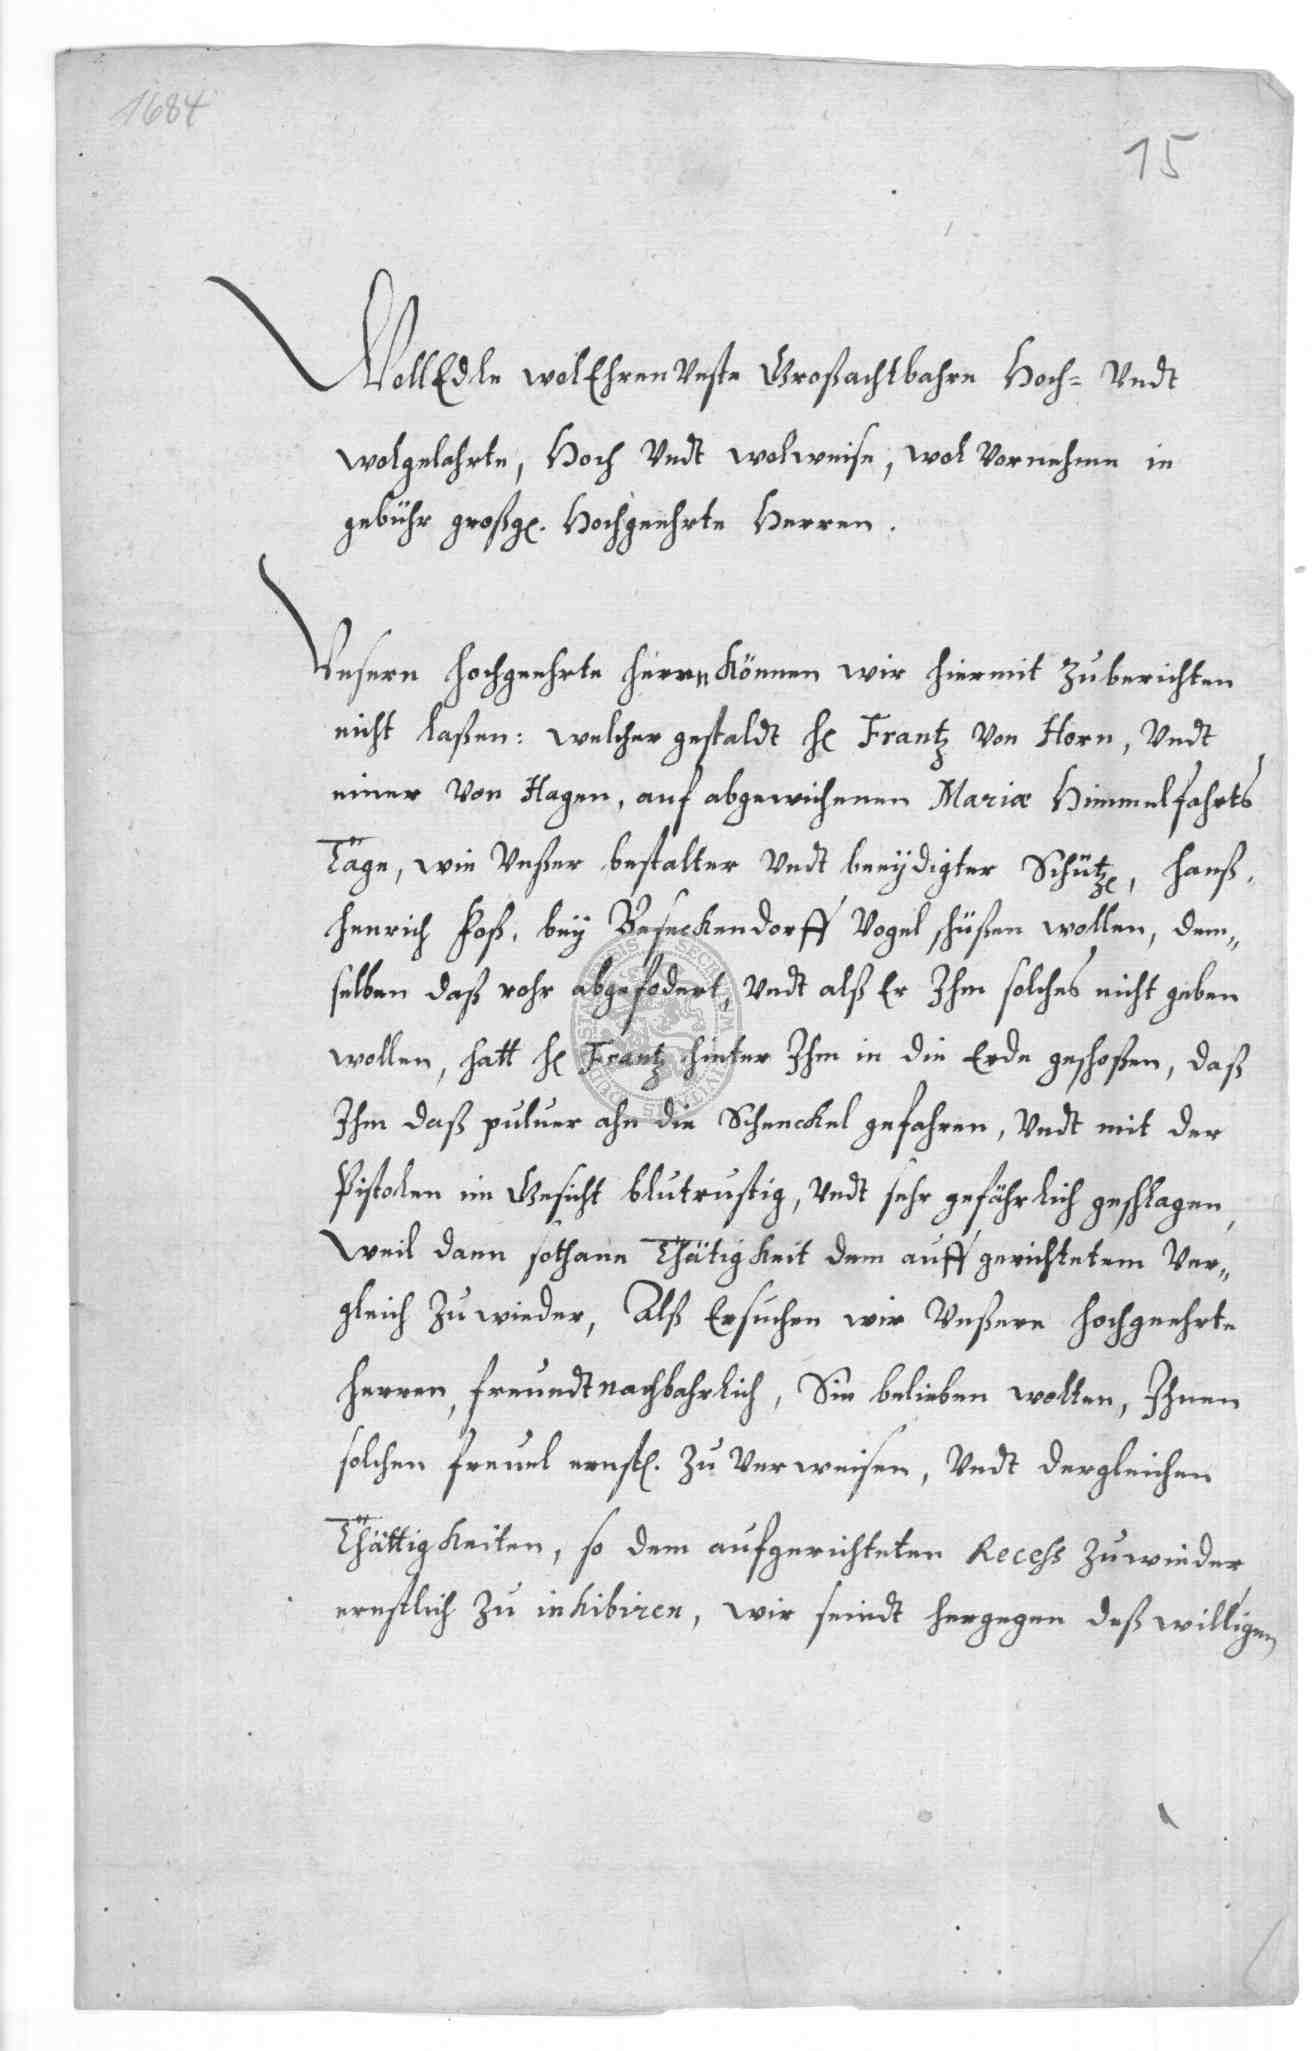 1684
15
WollEdle wolEhrenVeste Großachtbahre Hoch= Vndt
wolgelahrte, Hoch Vndt wolweise, wol Vornehme in
gebühr großg. Hochgeehrte Herren.
Vnsern hochgeehrte herrn Können wir hiermit zu berichten
nicht laßen: welcher gestaldt H Frantz Von Horn, Vndt
einer Von Hagen, auf abgewichenen Mariæ Himmelfahrts
Täge, wie Vnßer bestalter Vndt beeÿdigter Schütz, Hanß
Henrich Poß, beÿ BeseckenDorff Vogel schüßen wollen, dem„
selben daß rohr abgefodert, Vndt alß Er Ihm solches nicht geben
wollen, hatt H Frantz hinter Ihm in die Erde geschoßen, daß
Ihm daß puluer ahn die Schenckel gefahren, Vndt mit der
Pistolen im Gesicht blutrustig, Vndt sehr gefährlich geschlagen,
Weil dann sothane Thätigkeit dem auffgerichtetem Ver„
gleich zu wieder, Alß Ersuchen wir Vnßere hochgeehrte
herren, freundtnachbahrlich, Sie belieben wolten, Ihnen
solchen freuel ernstl. zu Verweisen, Vndt dergleichen
Thättigkeiten, so dem aufgerichteten Recess zuwieder
ernstlich zu inhibiren, wir seindt hergegen deß willigen
SECRETUM CIVITATIS